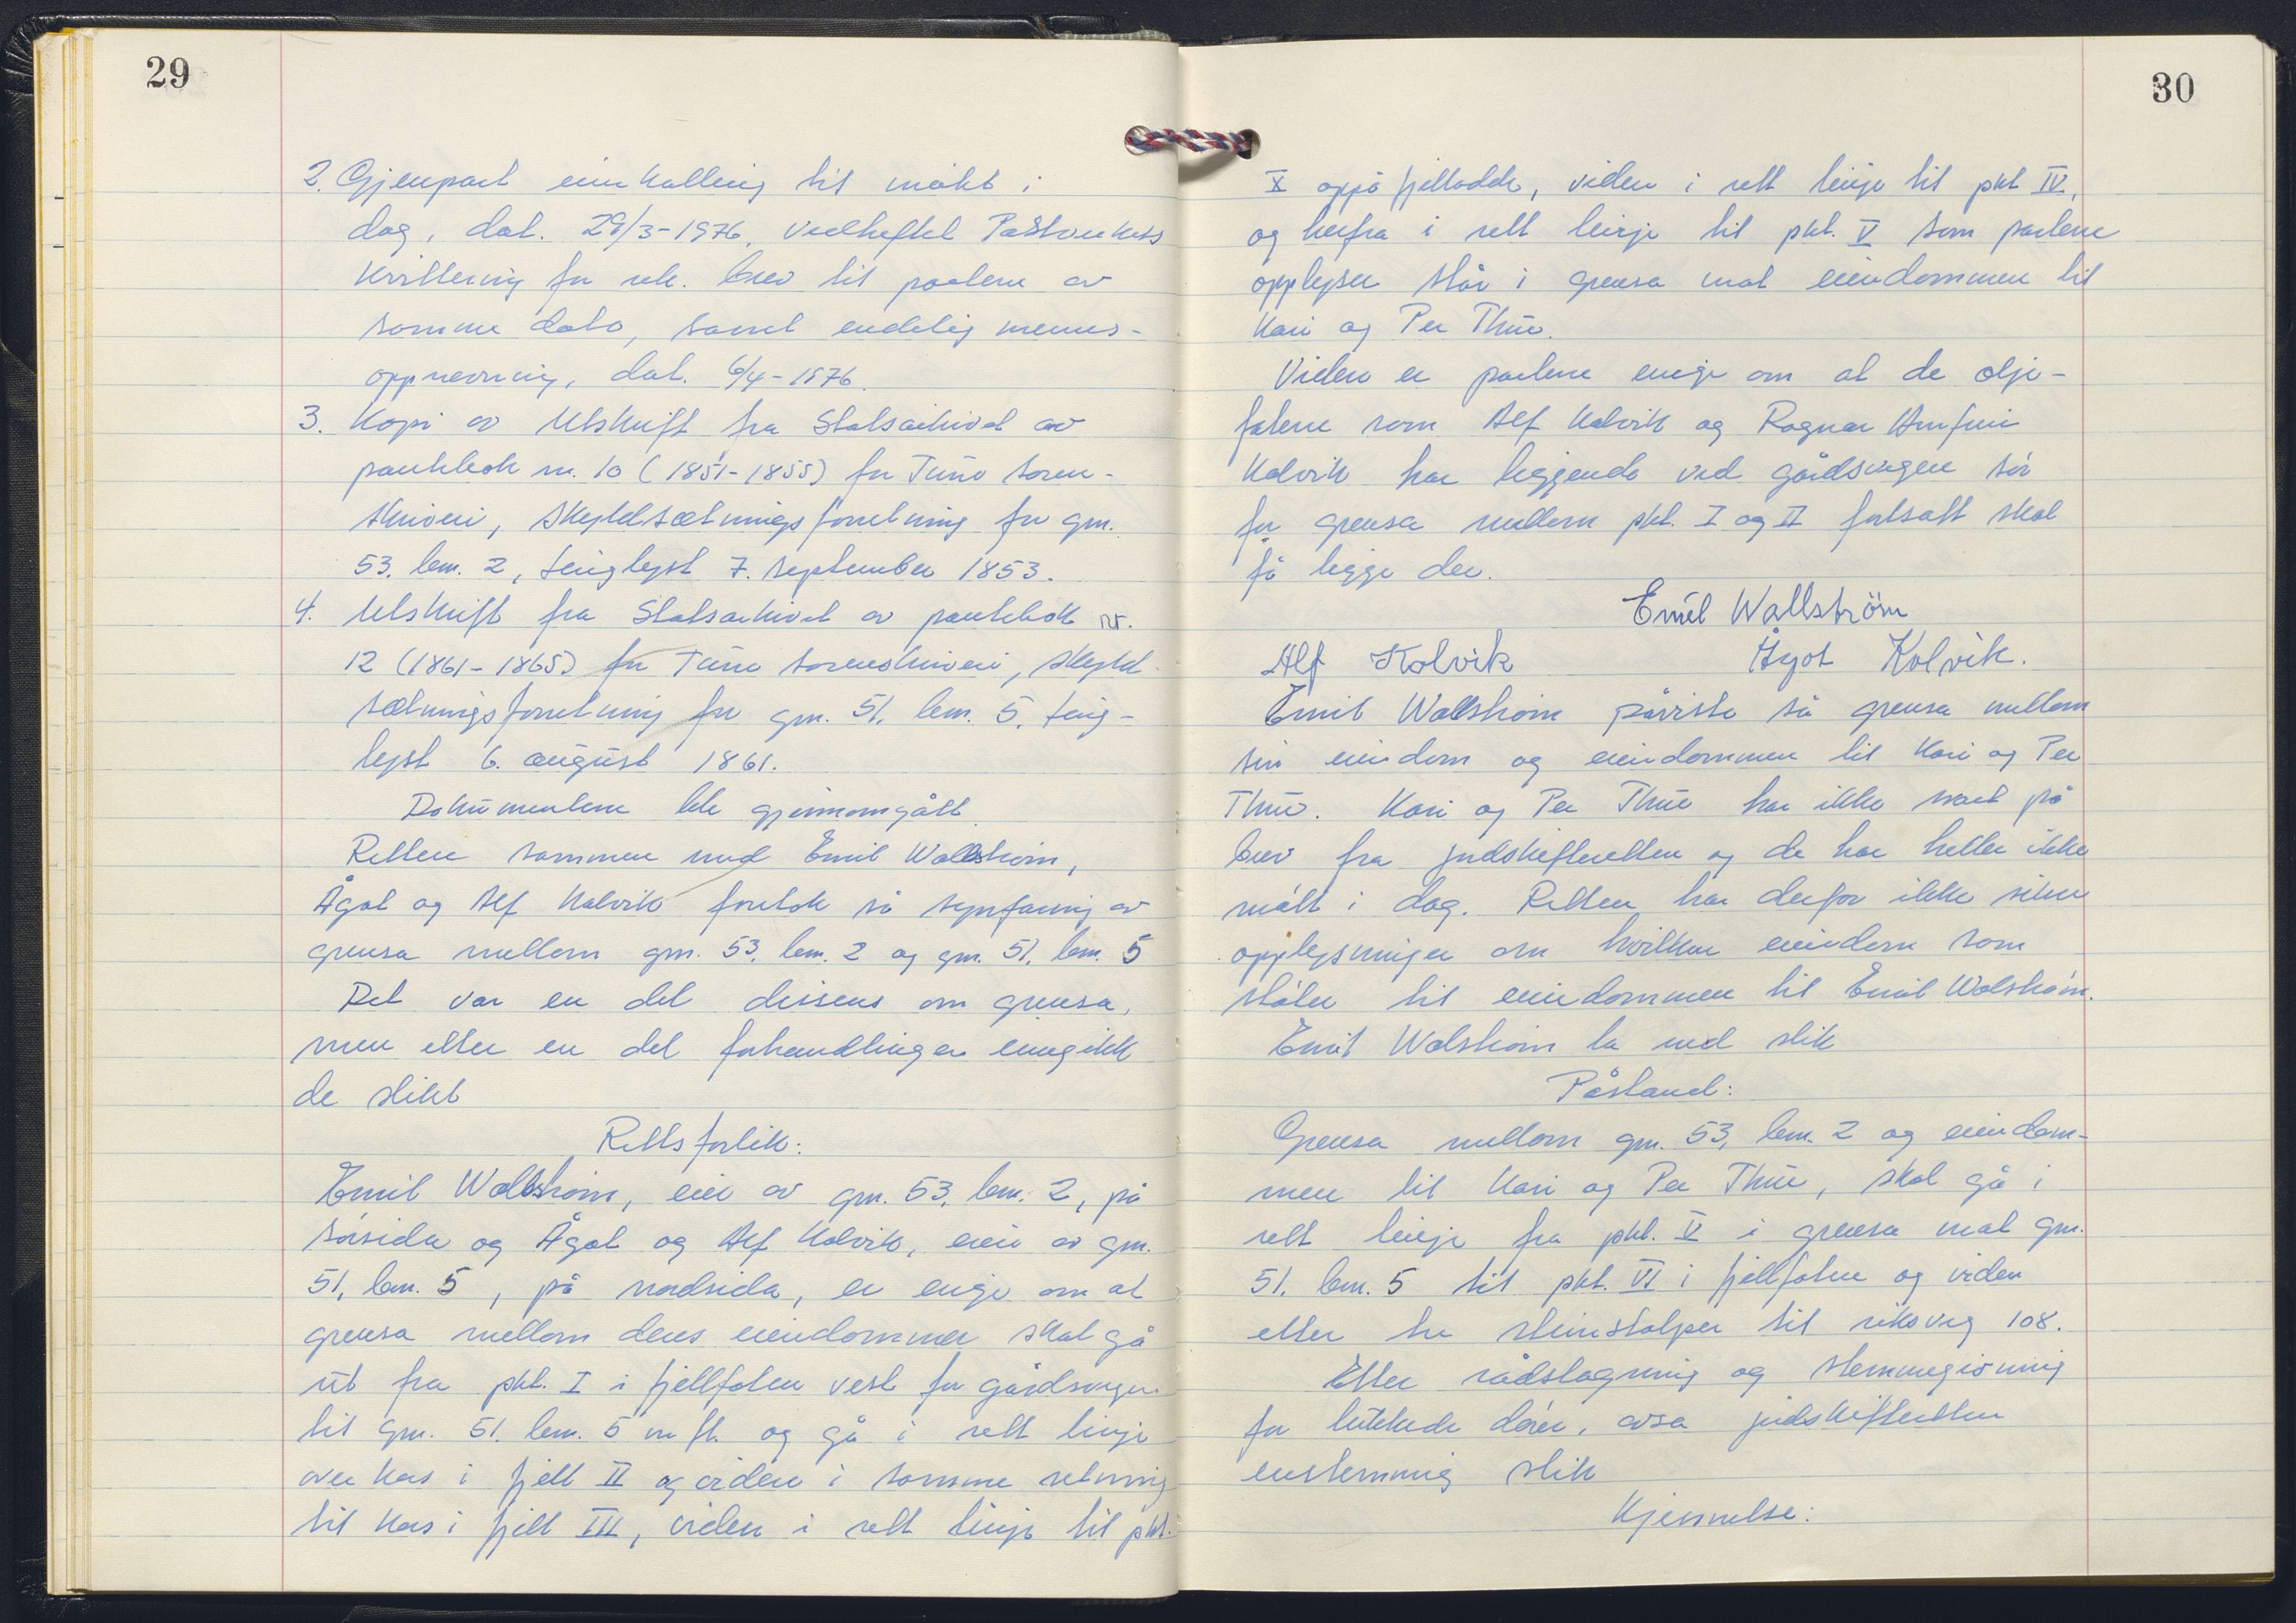 29
2. Gjenpart innkalling til møte i
dag, dat. 29/3-1976, vedheftet Postverkets
kvittering for rek. brev til partene av
samme dato, samt endelig menns-
oppnevning, dat. 6/4-1976.
3. Kopi av utskrift fra Statsarkivet av
pantebok nr. 10 (1851-1855) for Tune soren-
skriveri, skyldsætningsforretning for gnr.
53, bnr. 2, tinglyst 7. september 1853.
4. Utskrift fra Statsarkivet av pantebok nr.
12 (1861-1865) for Tune sorenskriveri, skyld-
sætningsforretning for gnr. 51, bnr. 5, ting-
lyst 6. august 1861.
Dokumentene ble gjennomgått.
Retten sammen med Emil Wallstrøm,
Ågot og Alf Kolvik foretok så synfaring av
grensa mellom gnr. 53, bnr. 2 og gnr. 51, bnr. 5
Det var en del dissens om grensa,
men etter en del forhandlinger inngikk
de slikt
Rettsforlik:
Emil Wallstrøm, eier av gnr. 53, bnr. 2, på
sørsida og Ågot og Alf Kolvik, eier av gnr.
51, bnr. 5, på nordsida, er enige om at
grensa mellom deres eiendommer skal gå
ut fra pkt. I i fjellfoten vest for gårdsvegen
til gnr. 51, bnr. 5 m fl. og gå i rett linje
over kors i fjell II og videre i samme retning
til kors i fjell III, videre i rett linje til pkt.
30
X oppå fjellodde, videre i rett linje til pkt IV,
og herfra i rett linje til pkt. V som partene
opplyser står i grensa mot eiendommen til
Kari og Per Thue.
Videre er partene enige om at de olje-
fatene som Alf Kolvik og Ragnar Arnfinn
Kolvik har liggende ved gårdsvegen sør
for grensa mellom pkt. I og II fortsatt skal
få ligge der.
Emil Wallström
Alf Kolvik Ågot Kolvik.
Emil Wallstrøm påviste så grensa mellom
sin eiendom og eiendommen til Kari og Per
Thue. Kari og Per Thue har ikke svart på
brev fra jordskifteretten og de har heller ikke
møtt i dag. Retten har derfor ikke sikre
opplysninger om hvilken eiendom som
støter til eiendommen til Emil Walstrøm.
Emil Walstrøm la ned slik
Påstand:
Grensa mellom gnr. 53, bnr. 2 og eiendom-
men til Kari og Per Thue, skal gå i
rett linje fra pkt. V i grensa mot gnr.
51, bnr. 5 til pkt. VI i fjellfoten og videre
etter tre steinstolper til riksveg 108.
Etter rådslagning og stemmegivning
for lukkede dører, avsa jordskifteretten
enstemmig slik
Kjennelse: